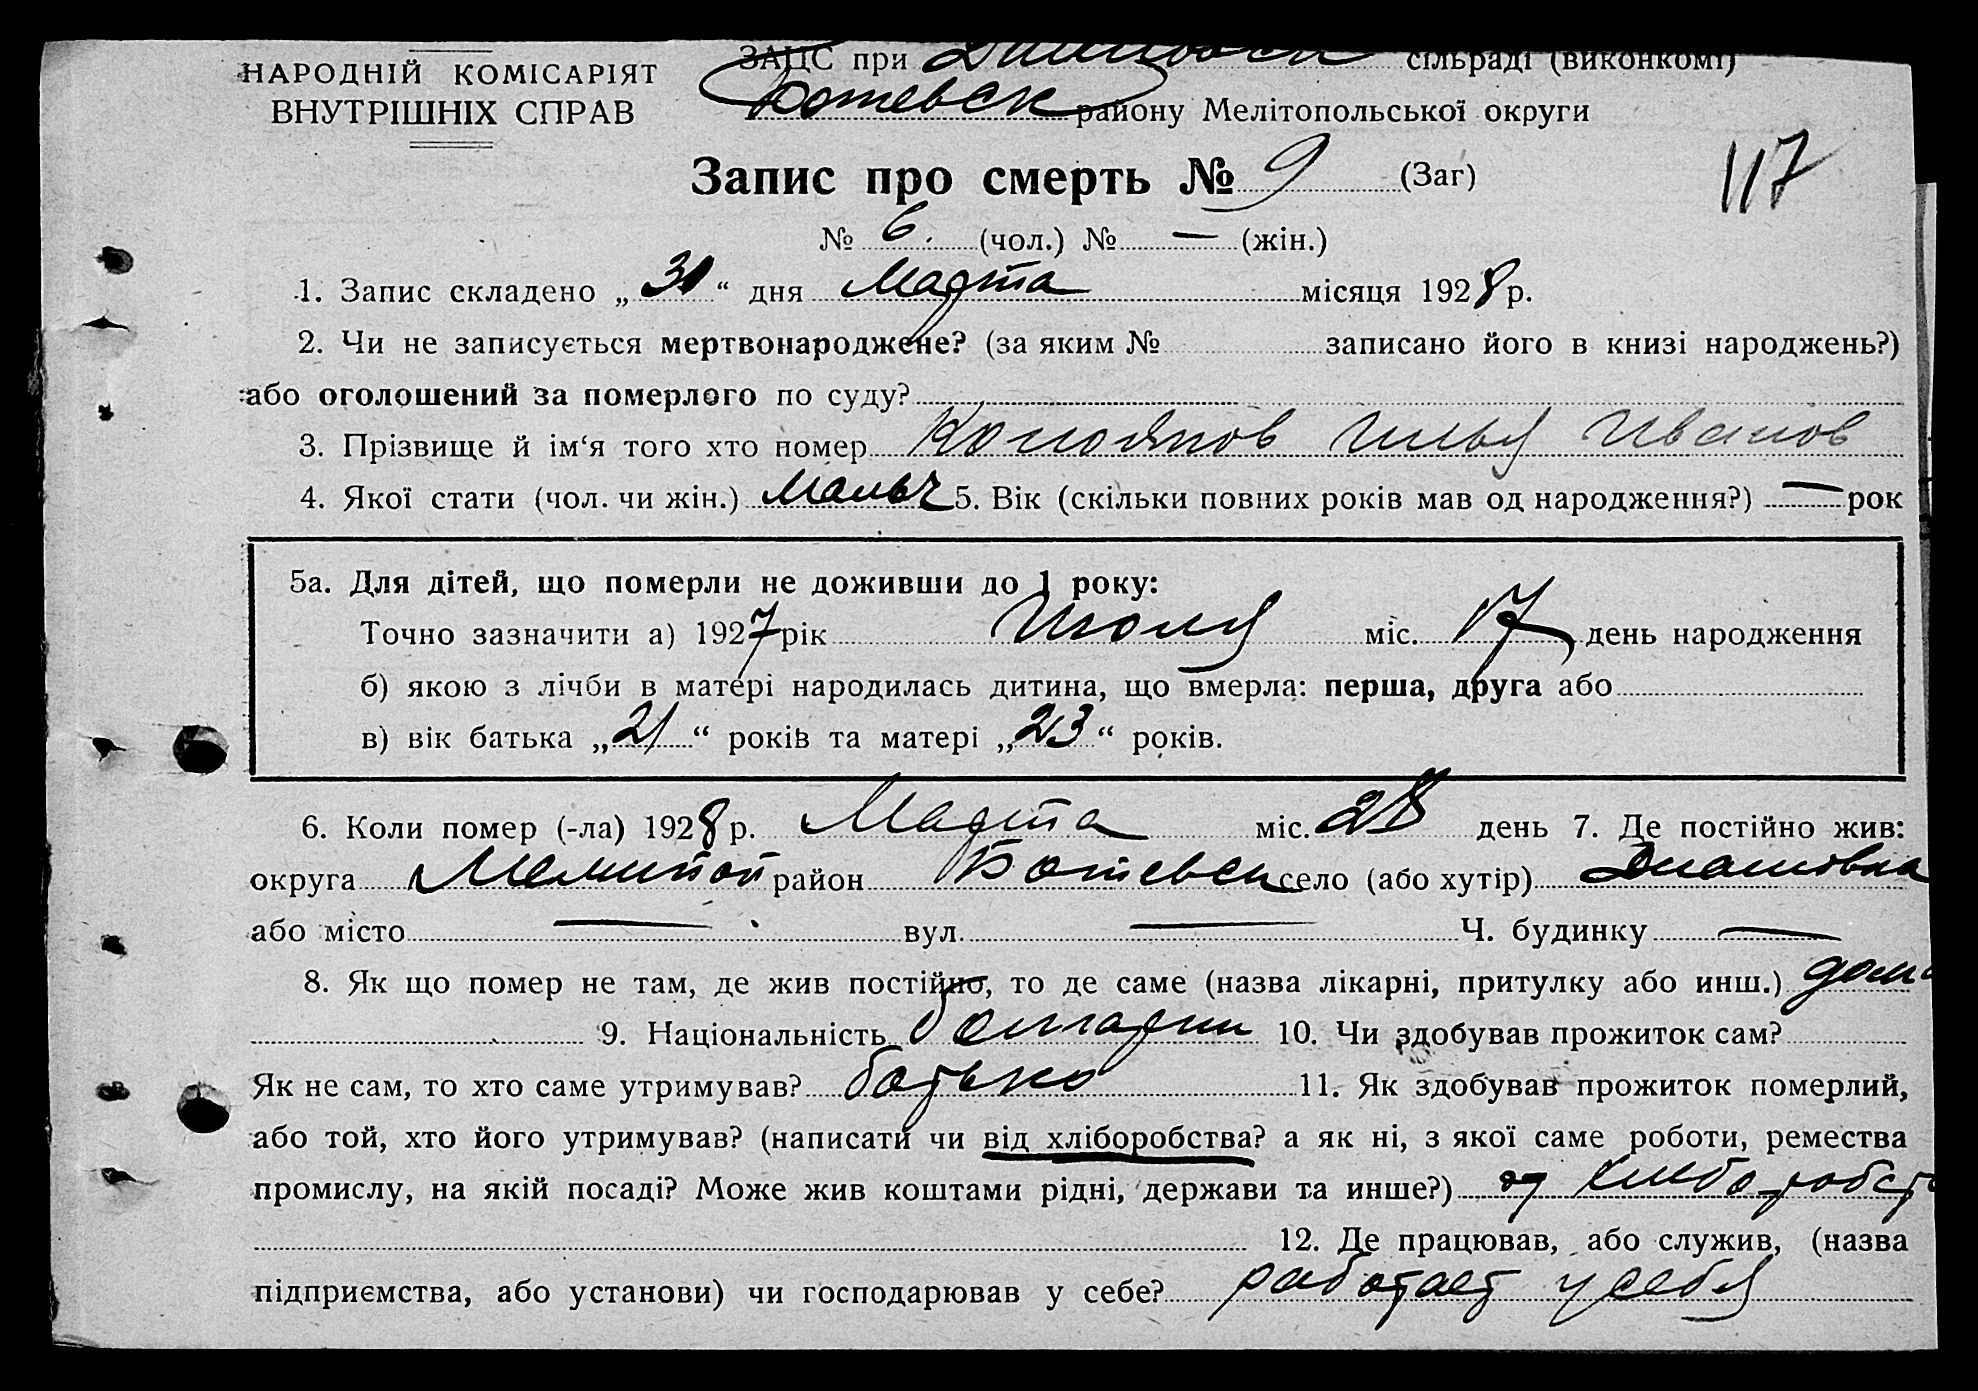 НАРОДНІЙ КОМІСАРІЯТ
ВНУТРІШНІХ СПРАВ
ЗАЦС при сільраді (виконкомі)
Ботевск району Мелітопольської округи
117
Запис про смерть № 9 (Заг)
№ 6. (чол.) № — (жін.)
1. Запис складено „31“ дня Марта місяця 1928 р.
2. Чи не записується мертвонароджене? (за яким № записано його в книзі народжень?)
або оголошений за померлого по суду?
3. Прізвище й ім‘я того хто помер Илья Иванов
4. Якої стати (чол. чи жін.) Мальч 5. Вік (скільки повних років мав од народження?) — рок
5а. Для дітей, що померли не доживши до 1 року:
Точно зазначити а) 1927 рік Июля міс. 17 день народження
б) якою з лічби в матері народилась дитина, що вмерла: перша, друга або
в) вік батька „21“ років та матері „23“ років.
6. Коли помер (-ла) 1928 р. Марта міс. 28 день 7. Де постійно жив:
округа Мелитоп район Ботевск село (або хутір)
або місто — вул. — Ч. будинку —
8. Як що помер не там, де жив постійно, то де саме (назва лікарні, притулку або инш.) дома
9. Національність болгарин 10. Чи здобував прожиток сам?
Як не сам, то хто саме утримував? батько 11. Як здобував прожиток померлий,
або той, хто його утримував? (написати чи від хліборобства? а як ні, з якої саме роботи, ремества
промислу, на якій посаді? Може жив коштами рідні, держави та инше?) од хлеборобст
12. Де працював, або служив, (назва
підприємства, або установи) чи господарював у себе? работает у себя